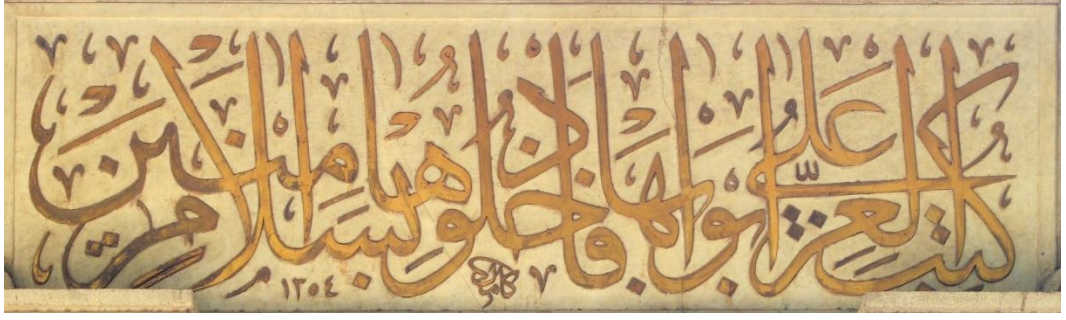 كتب العز على ابوابها فادخلوها بسلام آمنين
١٢٥٤